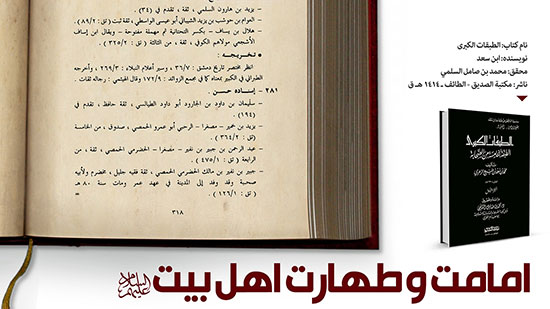 يزيد بن هارون السلمي ، ثقة ، تقدم في (٣٤) .
العوام بن حوشب بن يزيد الشيباني أبو عيسى الواسطي ، ثقة ثبت ( تق : ٨٩/٢ ) .
هلال بن يساف - بكسر التحتانية ثم مهملة مفتوحة - ويقال ابن إساف
الأشجعي مولاهم الكوفي ، ثقة ، من الثالثة ( تق : ٣٢٥/٢ ) .
• تخريجه :
انظر مختصر تاريخ دمشق : ٣٦/٧ ، وسير أعلام النبلاء : ٢٦٩/٣ ، وأخرجه
الطبراني في الكبير بمعناه كما في مجمع الزوائد : ١٧٢/٩ وقال الهيثمي : رجاله ثقات .
٢٨١ - إسناده حسن .
- سليمان بن داود بن الجارود أبو داود الطيالسي ، ثقة حافظ ، تقدم في
(١٩٤) .
- يزيد بن خمير - مصغرا - الرحبي أبو عمرو الحمصي ، صدوق ، من الخامسة
( تق : ٣٦٤/٢ ) .
- عبد الرحمن بن جبير بن نفير - مصغرا - الحضرمي الحمصي ، ثقة ، من
الرابعة ( تق : ٤٧٥/١ ) .
- جبير بن نفير بن مالك الحضرمي الحمصي ، ثقة فقيه جليل ، مخضرم ولأبيه
صحبة وقد وفد إلى المدينة في عهد عمر ومات سنة ٨٠ هـ
( تق : ١٢٦/١ ) .
٣١٨
نام کتاب: الطبقات الکبری
نویسنده: ابن سعد
محقق: محمد بن صامل السلمي
ناشر: مكتبة الصديق - الطائف - ١٤١٤ هـ ق
الطبقات الكبرى
امامت و طهارت اهل بیت علیهم السلام